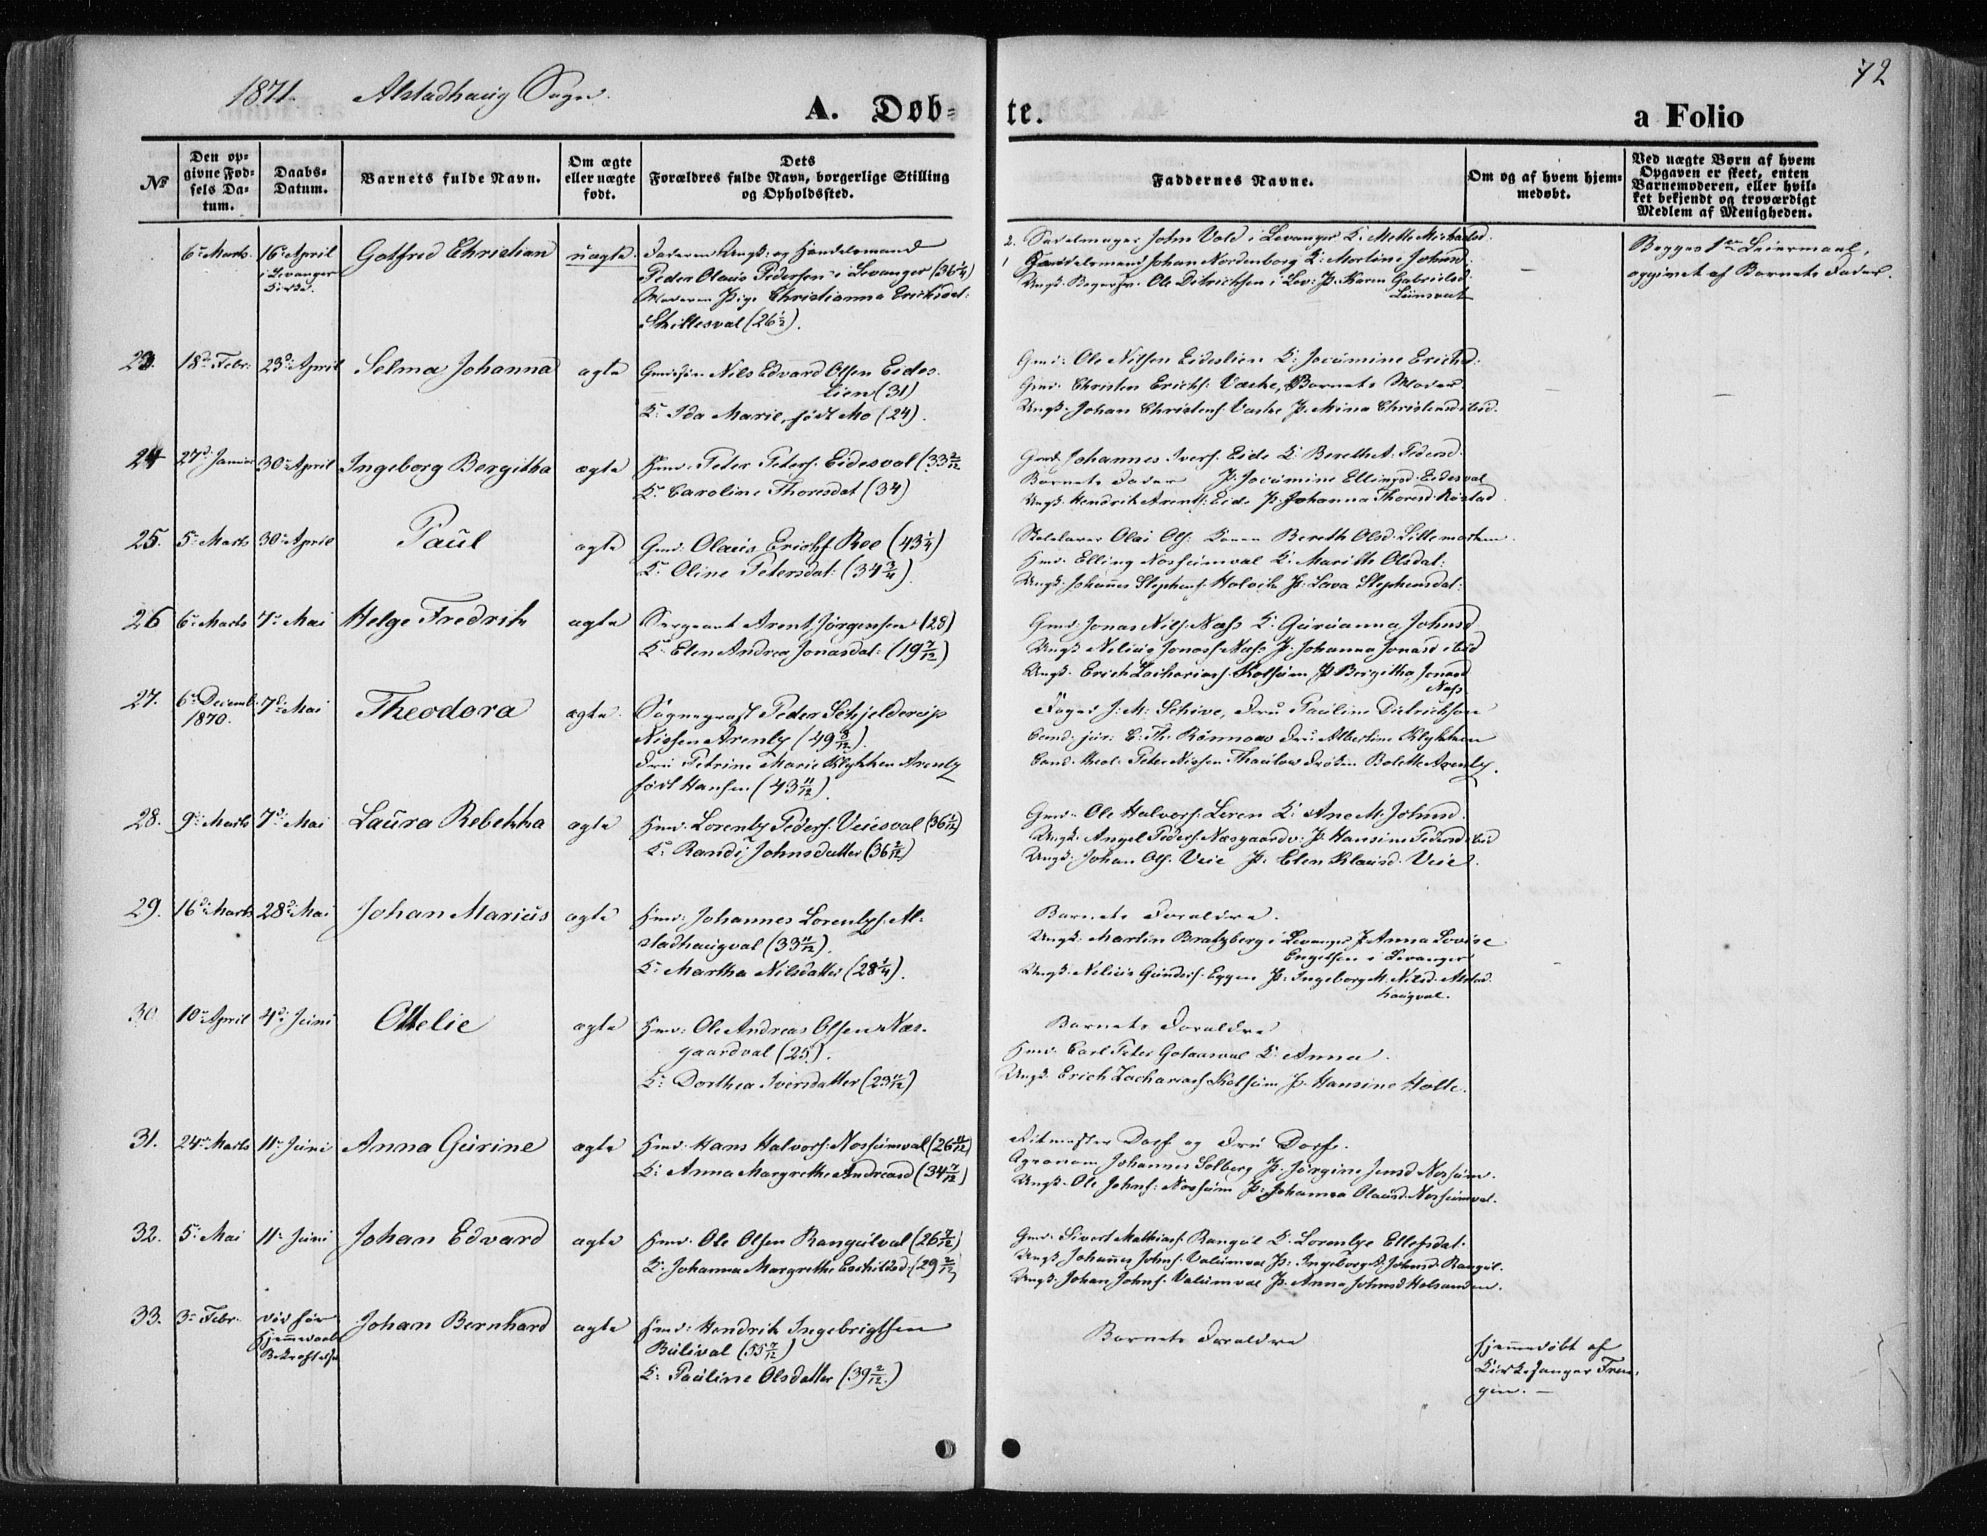 1871. Alstadhaug Sogn.
72
A. Døb=
te.
a Folio
No
Den op=
givne Fød=
sels Da=
tum.
Daabs=
Datum.
Barnets fulde Navn.
Om ægte
eller uægte
født.
Dets
Forældres fulde Navn, borgerlige Stilling
og Opholdssted.
Faddernes Navne.
Om og af hvem hjem=
medøbt.
Ved uægte Børn af hvem
Opgaven er skeet, enten
Barnemoderen, eller hvil=
ket bekjendt og troværdigt
Medlem af Menigheden.
6te Marts 16de April Gotfred Christian uægte
i Levanger
Kirke.
Faderen Ungk: og Handelsmand
Peder Olaus Pedersen i Levanger (36 1/4)
Moderen Pige Christianna Ericksdat:
(26 1/2).
2. Sadelmager John Vold i Levanger K: Mette Michelsd.
1 Handelsmand Johan Nordenborg K: Martine Johnsd.
Ole Ditrichsen i Lev: P: Karen Gabrielsd.
Begges 1ste Leiermaal,
opgivet af Barnets Fader.
23. 18de Febr. 23de April Selma Johanna ægte
Nils Edvard Olsen Eides
lien (31)
K: Ida Marie, født Mo (24).
Gmd: Ole Nilsen Eideslien K: Jocumine Erichsd:
Gmd: Christen Erichs: Barnets Moder
Ungk: Johan Christens: P: Mina Christensd ibid.
24 27de Januar 30te April Ingeborg Bergitha ægte
Hmd: Peter Peters: Eidesval (33 2/12
K: Caroline Thoresdat (34)
Gmd: Johannes Ivers: Eide K: Berethe A. Pedersd.
Barnets Fader P: Jocumine Ellingsd. Eidesval
Ungk: Hendrik Arents: Eide P: Johanna Thoresd.
25. 5te Marts 30te April Paul ægte
Gmd: Olaus Erichs Roe (43 1/4)
K: Oline Petersdat: (34 3/4).
Olai Ols: Konen Bereth Olsd.
Hmd: Elling Nossumval K: Marith Olsdat:
Ungk: Johannes Stephens: Halvik P: Lava Stephensdat:
26 6te Marts 7de Mai Helge Fredrik ægte
Sergeant Arent Jørgensen (28)
K: Elen Andrea Jonasdat: (19 7/12)
Gmd: Jonas Nils: Næss K: Guruanna Johnsd
Ungk: Nelius Jonass: Næss P: Johanna Jonasd ibid
Ungk: Erich Zachariass: Kolsum P: Bergitha Jonasd
Næss
27. 6te Decemb: 7de Mai Theodora ægte
1870.
Sognepræst Peder Schjelderup
Nissen Arentz (49 8/12).
Fru Petrine Marie Klykken Arentz
født Hansen (43 11/12).
Foged J. M. Schive, Fru Pauline Dietrichson
Cand: jur: C. Th. Rønnow Fru Albertine Klykken
Cand: theol: Peter Nissen Thaulow Frøken Bolette Arentz.
28. 9de Marts 7de Mai Laura Rebekka ægte
Hmd: Lorentz Peders: Veiesval (36 1/2)
K: Randi Johnsdatter (36 2/12)
Gmd: Ole Halvors: Leren K: Ane M. Johnsd.
Ungk: Angel Peders: Næsgaardv: P: Hansine Pedersd ibid
Ungk: Johan Ols: Veie P: Elen Klausd: Veie.
29. 16de Marts 28de Mai Johan Marius ægte
Hmd: Johannes Lorentzs: Al=
stadhaugval (33 11/12).
K: Martha Nilsdatter (28 1/4).
Barnets Forældre.
Ungk: Martin Bratzberg i Levanger P: Anna Lovise
Engelsen i Levanger
Ungk: Nelius Gunders: Eggen P: Ingeborg M. Nilsd: Alstad
haugval.
30. 10de April 4de Juni Ottelie ægte
Hmd: Ole Andreas Olsen Næs=
gaardval (25).
K: Dorthea Iversdatter (23 11/12)
Barnets Forældre
Hmd: Carl Peter K: Anna.
Ungk: Erich Zacharias Kolsum P: Hansine Holte.
31. 24de Marts 11te Juni Anna Gurine ægte
Hmd: Hans Halvors: Nossumval (26 11/12)
K: Anna Margrethe Andreasd (34 7/12)
Ritmester Dorf og Fru Dorf.
Agronom Johannes Solberg P: Jørgine Jensd Nossum.
Ungk: Ole Johns: Nossum P: Johanna Olausd. Nossumval.
32. 5te Mai 11te Juni Johan Edvard ægte
Hmd: Ole Olsen Rangulval (26 7/12)
K: Johanna Margrethe Eschildsd: (29 2/12)
Gmd: Sivert Mathiass: Rangul K: Lorentze Ellefsdat.
Ungk: Johannes Johns: Valumval P: Ingeborg K. Johnsd: Rangul.
Ungk: Johan Johns: Valumval P: Anna Johnsd Holsanden.
33. 3de Febr. død før Johan Bernhard ægte
Hjemmedaabs
Bekræftelse
Hmd: Hendrik Ingebrigtsen
Bulival (55 7/12)
K: Pauline Olsdatter (39 2/12.)
Barnets Forældre
hjemmedøbt af
Kirkesanger